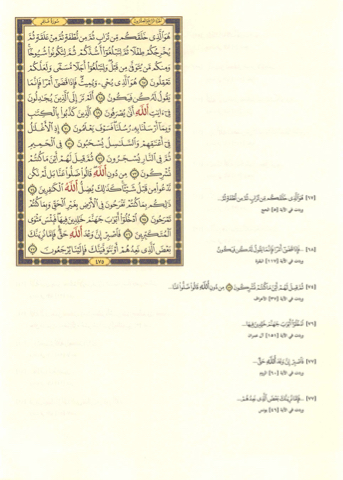 الجزء الرابع والعشرون سورة غافر
هُوَ الَّذِي خَلَقَكُم مِّن تُرَابٍ ثُمَّ مِن نُّطْفَةٍ ثُمَّ مِنْ عَلَقَةٍ ثُمَّ
يُخْرِجُكُمْ طِفْلًا ثُمَّ لِتَبْلُغُوا أَشُدَّكُمْ ثُمَّ لِتَكُونُوا شُيُوخًا
وَمِنكُم مَّن يُتَوَفَّىٰ مِن قَبْلُ وَلِتَبْلُغُوا أَجَلًا مُّسَمًّى وَلَعَلَّكُمْ
تَعْقِلُونَ ٦٧ هُوَ الَّذِي يُحْيِۦ وَيُمِيتُ فَإِذَا قَضَىٰ أَمْرًا فَإِنَّمَا
يَقُولُ لَهُۥ كُن فَيَكُونُ ٦٨ أَلَمْ تَرَ إِلَى الَّذِينَ يُجَٰدِلُونَ
فِي ءَايَٰتِ اللَّهِ أَنَّىٰ يُصْرَفُونَ ٦٩ الَّذِينَ كَذَّبُوا بِالْكِتَٰبِ
وَبِمَا أَرْسَلْنَا بِهِۦ رُسُلَنَا فَسَوْفَ يَعْلَمُونَ ٧٠ إِذِ الْأَغْلَٰلُ
فِي أَعْنَٰقِهِمْ وَالسَّلَٰسِلُ يُسْحَبُونَ ٧١ فِي الْحَمِيمِ
ثُمَّ فِي النَّارِ يُسْجَرُونَ ٧٢ ثُمَّ قِيلَ لَهُمْ أَيْنَ مَا كُنتُمْ
تُشْرِكُونَ ٧٣ مِن دُونِ اللَّهِ قَالُوا ضَلُّوا عَنَّا بَل لَّمْ نَكُن
نَّدْعُوا مِن قَبْلُ شَيْئًا كَذَٰلِكَ يُضِلُّ اللَّهُ الْكَٰفِرِينَ ٧٤
ذَٰلِكُم بِمَا كُنتُمْ تَفْرَحُونَ فِي الْأَرْضِ بِغَيْرِ الْحَقِّ وَبِمَا كُنتُمْ
تَمْرَحُونَ ٧٥ ادْخُلُوا أَبْوَٰبَ جَهَنَّمَ خَٰلِدِينَ فِيهَا فَبِئْسَ مَثْوَى
الْمُتَكَبِّرِينَ ٧٦ فَاصْبِرْ إِنَّ وَعْدَ اللَّهِ حَقٌّ فَإِمَّا نُرِيَنَّكَ
بَعْضَ الَّذِي نَعِدُهُمْ أَوْ نَتَوَفَّيَنَّكَ فَإِلَيْنَا يُرْجَعُونَ ٧٧
٤٧٥
[٦٧] هُوَ الَّذِي خَلَقَكُم مِّن تُرَابٍ ثُمَّ مِن نُّطْفَةٍ ثُمَّ...
وردت في الآية [٥] الحج
[٦٨] ...فَإِذَا قَضَىٰ أَمْرًا فَإِنَّمَا يَقُولُ لَهُۥ كُن فَيَكُونُ
وردت في الآية [١١٧] البقرة
ثُمَّ قِيلَ لَهُمْ أَيْنَ مَا كُنتُمْ تُشْرِكُونَ ٧٣ مِن دُونِ اللَّهِ قَالُوا ضَلُّوا عَنَّا...
وردت في الآية [٣٧] الأعراف
[٧٦] ادْخُلُوا أَبْوَٰبَ جَهَنَّمَ خَٰلِدِينَ فِيهَا...
وردت في الآية آل عمران
[٧٧] فَاصْبِرْ إِنَّ وَعْدَ اللَّهِ حَقٌّ...
وردت في الآية [٦٠] الروم
[٧٧] ...فَإِمَّا نُرِيَنَّكَ بَعْضَ الَّذِي نَعِدُهُمْ...
وردت في الآية [٤٦] يونس